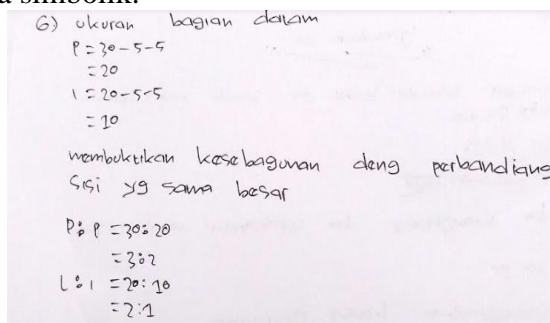 a simbolik.
6) ukuran bagian dalam
P = 30 - 5 - 5
= 20
l = 20 - 5 - 5
= 10
membuktikan kesebagunan deng perbandiang
sisi yg sama besar
P : P = 30 : 20
= 3 : 2
L : l = 20 : 10
= 2 : 1